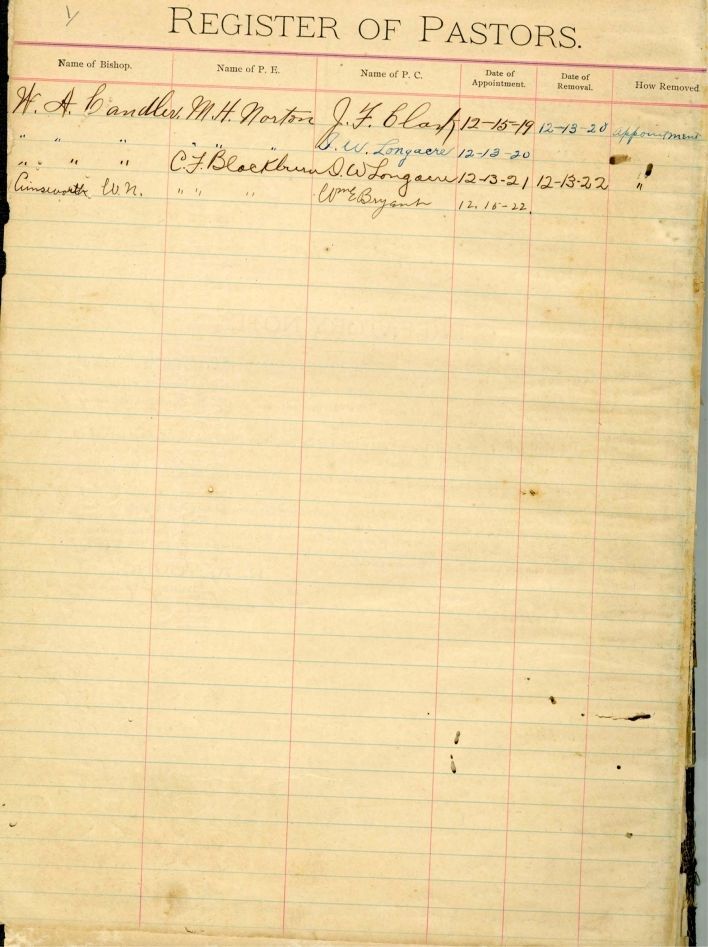 REGISTER OF PASTORS.
Name of Bishop. Name of P. E. Name of P. C. Date of Appointment. Date of Removal. How Removed
W. A. Candler. M. H. Norton J. F. Clark 12-15-19 12-13-20 appointment
" " " " " " I. W. Longacre 12-13-20
" " " " C. F. Blackburn I. W Longacre 12-13-21 12-13-22 "
Ainsworth W. N. " " " Wm E Bryant 12. 15-22.